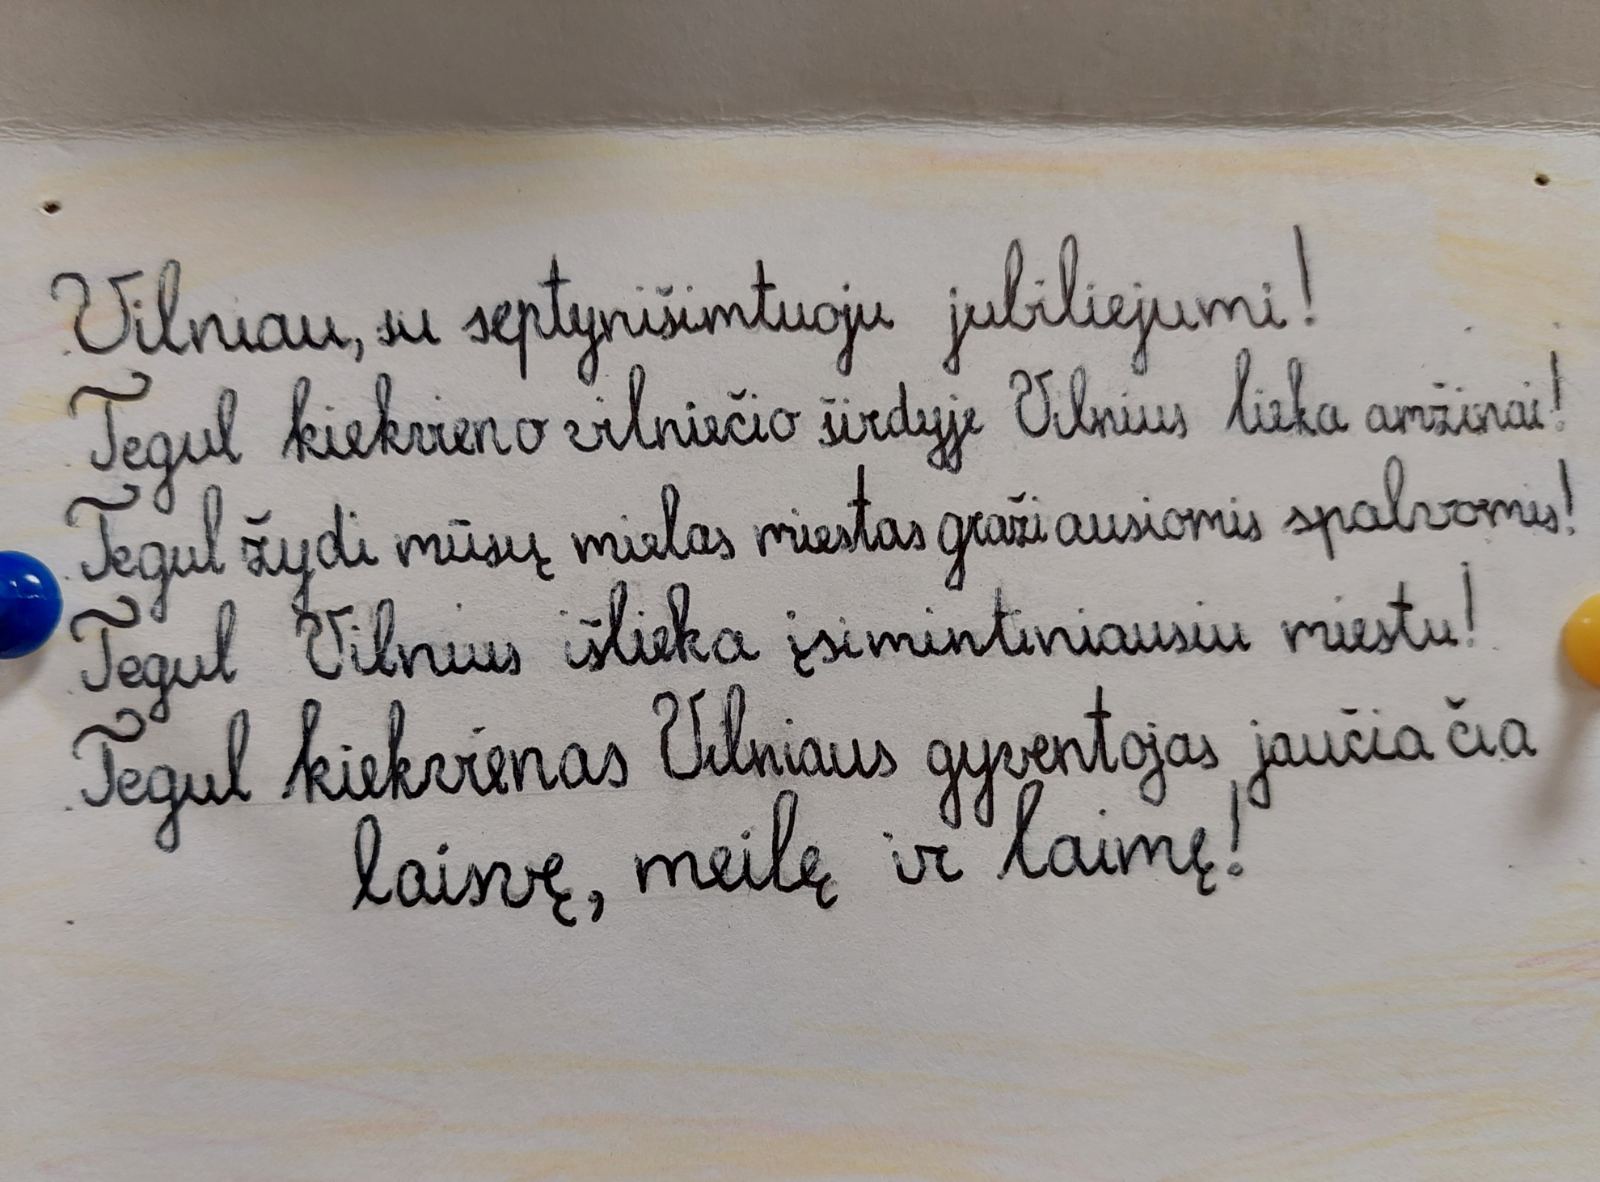 Vilniau, su septynišimtuoju jubiliejumi!
Tegul kiekvieno vilniečio širdyje Vilnius lieka amžinai!
Tegul žydi mūsų mielas miestas gražiausiomis spalvomis!
Tegul Vilnius išlieka įsimintiniausiu miestu!
Tegul kiekvienas Vilniaus gyventojas jaučia čia
laisvę, meilę ir laimę!